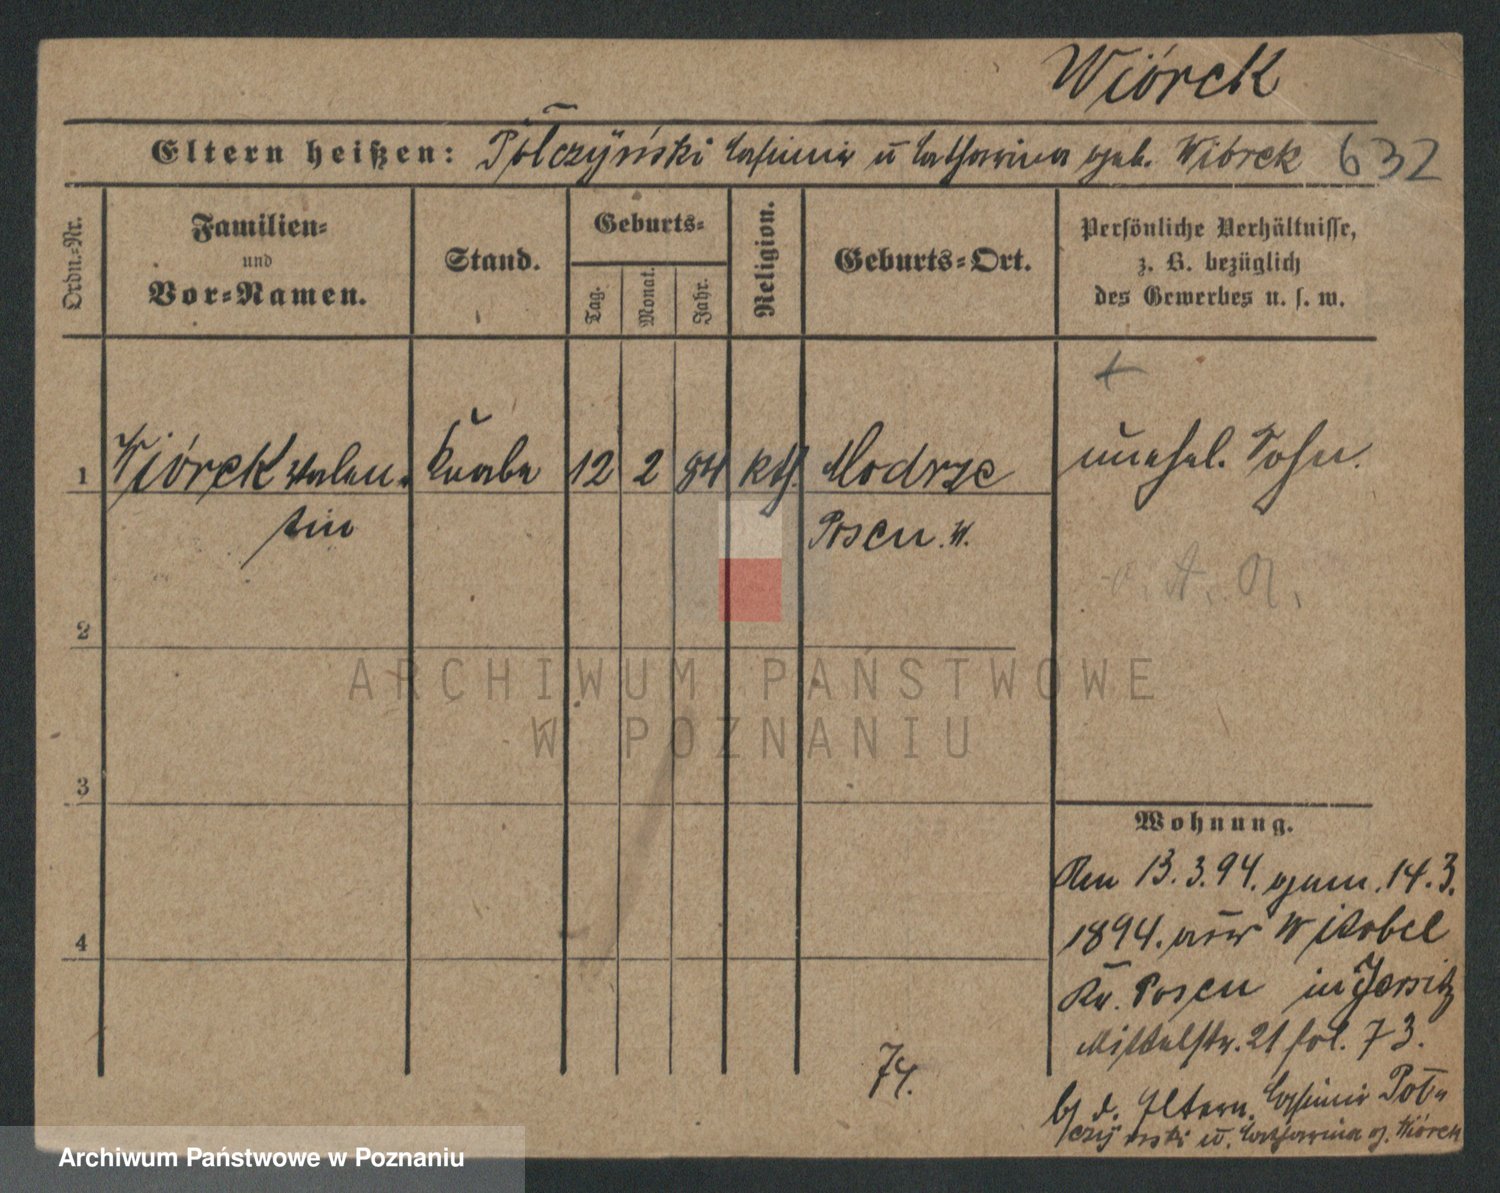 Wiórek
Eltern heißen: Połczyński Casimir u Catharina geb. Wiórek 632
Ordn.-Nr.
Familien-
und
Vor-Namen.
Stand.
Geburts-
Tag.
Monat.
Jahr.
Religion.
Geburts-Ort.
Persönliche Verhältnisse,
z. B. bezüglich
des Gewerbes u. s. w.
1 Wiórek Valen- Knabe 12 2 84 kth. Modrze unehel. Sohn.
tin Posen W.
v. A. A.
2
3
4
Wohnung.
Den 13.3.94. gem. 14.3.
1894. aus Witobel
Kr. Posen in Jersitz
Mittelstr. 21 fol. 73.
bj d. Eltern. Casimir Poł-
czyński u. Catharina g. Wiórek
74.
ARCHIWUM PAŃSTWOWE
W POZNANIU
Archiwum Państwowe w Poznaniu